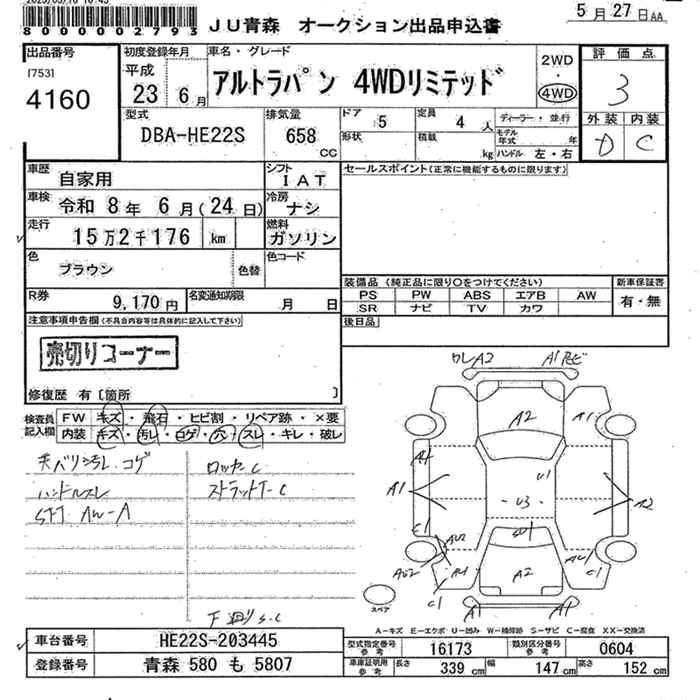 8000000002793
JU青森 オークション出品申込書
5月27日AA
出品番号
[753]
4160
初度登録年月
平成
23 6月
車名・グレード
アルトラパン 4WDリミテッド
2WD
・
4WD
評価点
3
外装 内装
D C
型式
DBA-HE22S
排気量
658
CC
ドア
5
形状
定員
4 人
積載
kg
ディーラー・並行
モデル年式 年
ハンドル 左・右
車歴
自家用
シフト
IAT
車検
令和 8年 6月(24日)
冷房
ナシ
走行
15万2千176 km
燃料
ガソリン
色
ブラウン
色替
色コード
R券
9,170円
名変通知期限
月 日
セールスポイント(正常に機能するものに限ります)
装備品(純正品に限り〇をつけてください)
PS PW ABS エアB AW
SR ナビ TV カワ
新車保証書
有・無
後日品
注意事項申告欄(不具合内容等は具体的に記入して下さい)
売切りコーナー
修復歴 有〔箇所 〕
検査員記入欄
FW キズ・飛石・ヒビ割・リペア跡・×要
内装 キズ・汚レ・コゲ・穴・スレ・キレ・破レ
天バリ汚レ コゲ
ハンドルスレ
ロッカーC
ストラットT-C
下廻りS.C
ワレA2
A2
A1
A4
A1
C1
U1
U3
A2
A2
A1
C1
C1
A1
A1
スペア
A-キズ E-エクボ U-凹み W-補修跡 S-サビ C-腐食 XX-交換済
車台番号
HE22S-203445
登録番号
青森 580 も 5807
型式指定番号
参考
16173
類別区分番号
参考
0604
車庫証明用
参考
長さ 339 cm
幅 147 cm
高さ 152 cm